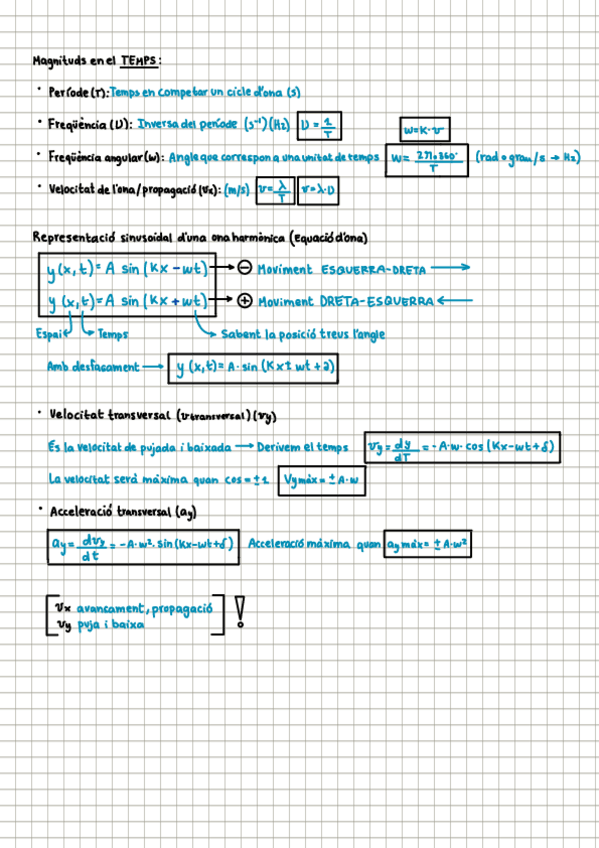 Magnituds en el TEMPS:
· Període (T): Temps en competar un cicle d'ona (s)
· Freqüència (υ): Inversa del període (s⁻¹) (Hz) υ = 1/T w = K·v
· Freqüència angular (w): Angle que correspon a una unitat de temps w = 2π o 360°/T (rad o grau/s → Hz)
· Velocitat de l'ona/propagació (vx): (m/s) v = λ/T v = λ·υ
Representació sinusoidal d'una ona harmònica (Equació d'ona)
y (x,t) = A sin (Kx - wt) → ⊖ Moviment ESQUERRA-DRETA →
y (x,t) = A sin (Kx + wt) → ⊕ Moviment DRETA-ESQUERRA ←
Espai Temps Sabent la posició treus l'angle
Amb desfacament → y (x,t) = A · sin (Kx ± wt + ∂)
· Velocitat transversal (v transversal) (vy)
És la velocitat de pujada i baixada → Derivem el temps vy = dy/dT = -A·w· cos (Kx-wt+δ)
La velocitat serà màxima quan cos = ±1 Vy màx = ± A·w
· Acceleració transversal (ay)
ay = dvy/dt = -A·w²· sin (Kx-wt+δ) Acceleració màxima quan ay màx = ± A·w²
vx avancament, propagació !
vy puja i baixa